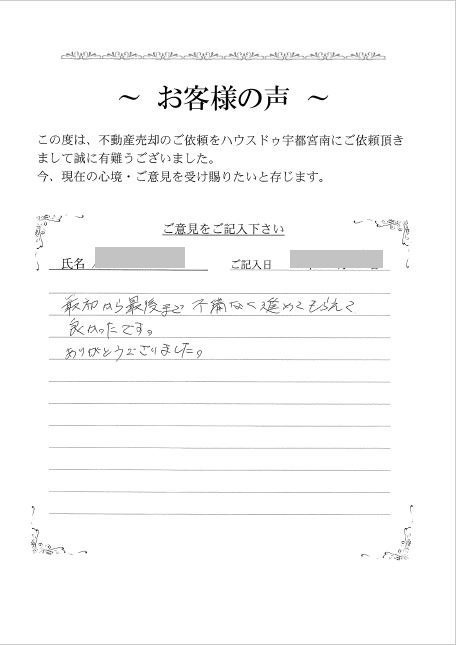 ～ お客様の声 ～
この度は、不動産売却のご依頼をハウスドゥ宇都宮南にご依頼頂き
まして誠に有難うございました。
今、現在の心境・ご意見を受け賜りたいと存じます。
ご意見をご記入下さい
氏名 ご記入日
最初から最後まで 不備なく進めてもらえて
良かったです。
ありがとうございました。